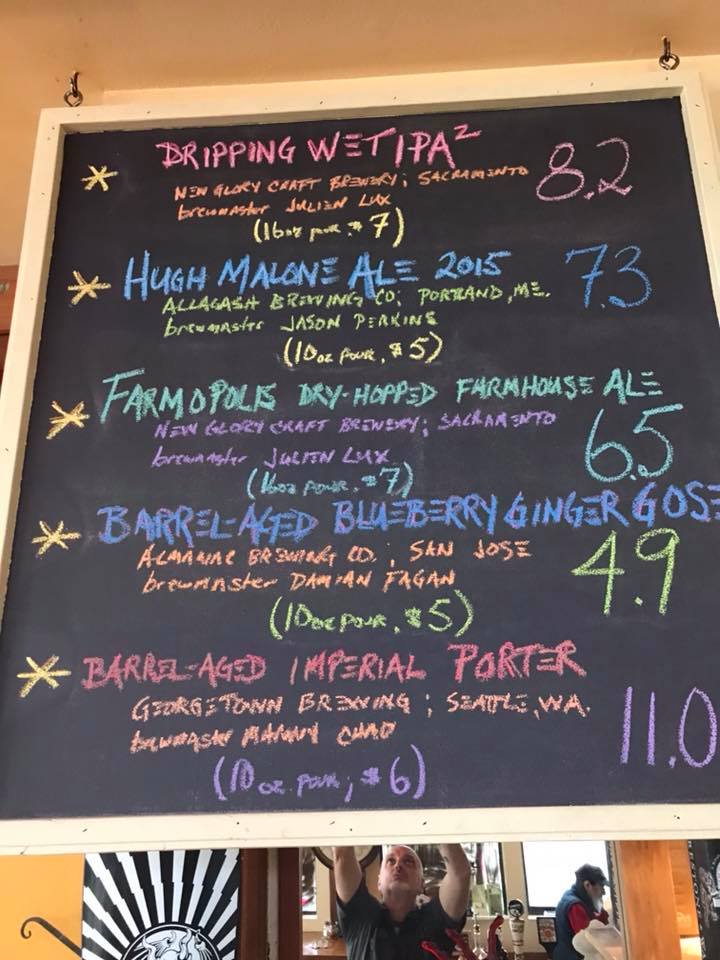 DRIPPING WET IPA²
8.2
NEW GLORY CRAFT BREWERY; SACRAMENTO
brewmaster JULIEN LUX
(16oz pour, $7)
HUGH MALONE ALE 2015
7.3
ALLAGASH BREWING CO; PORTLAND, ME.
brewmaster JASON PERKINS
(10oz POUR, $5)
FARMOPOLIS DRY-HOPPED FARMHOUSE ALE
NEW GLORY CRAFT BREWERY; SACRAMENTO
6.5
brewmaster JULIEN LUX
(16oz POUR, $7)
BARREL-AGED BLUEBERRY GINGER GOSE
ALMANAC BREWING CO.; SAN JOSE
4.9
brewmaster DAMIAN FAGAN
(10oz POUR, $5)
BARREL-AGED IMPERIAL PORTER
GEORGETOWN BREWING; SEATTLE, WA.
11.0
brewmaster MANNY CHAO
(10oz POUR, $6)